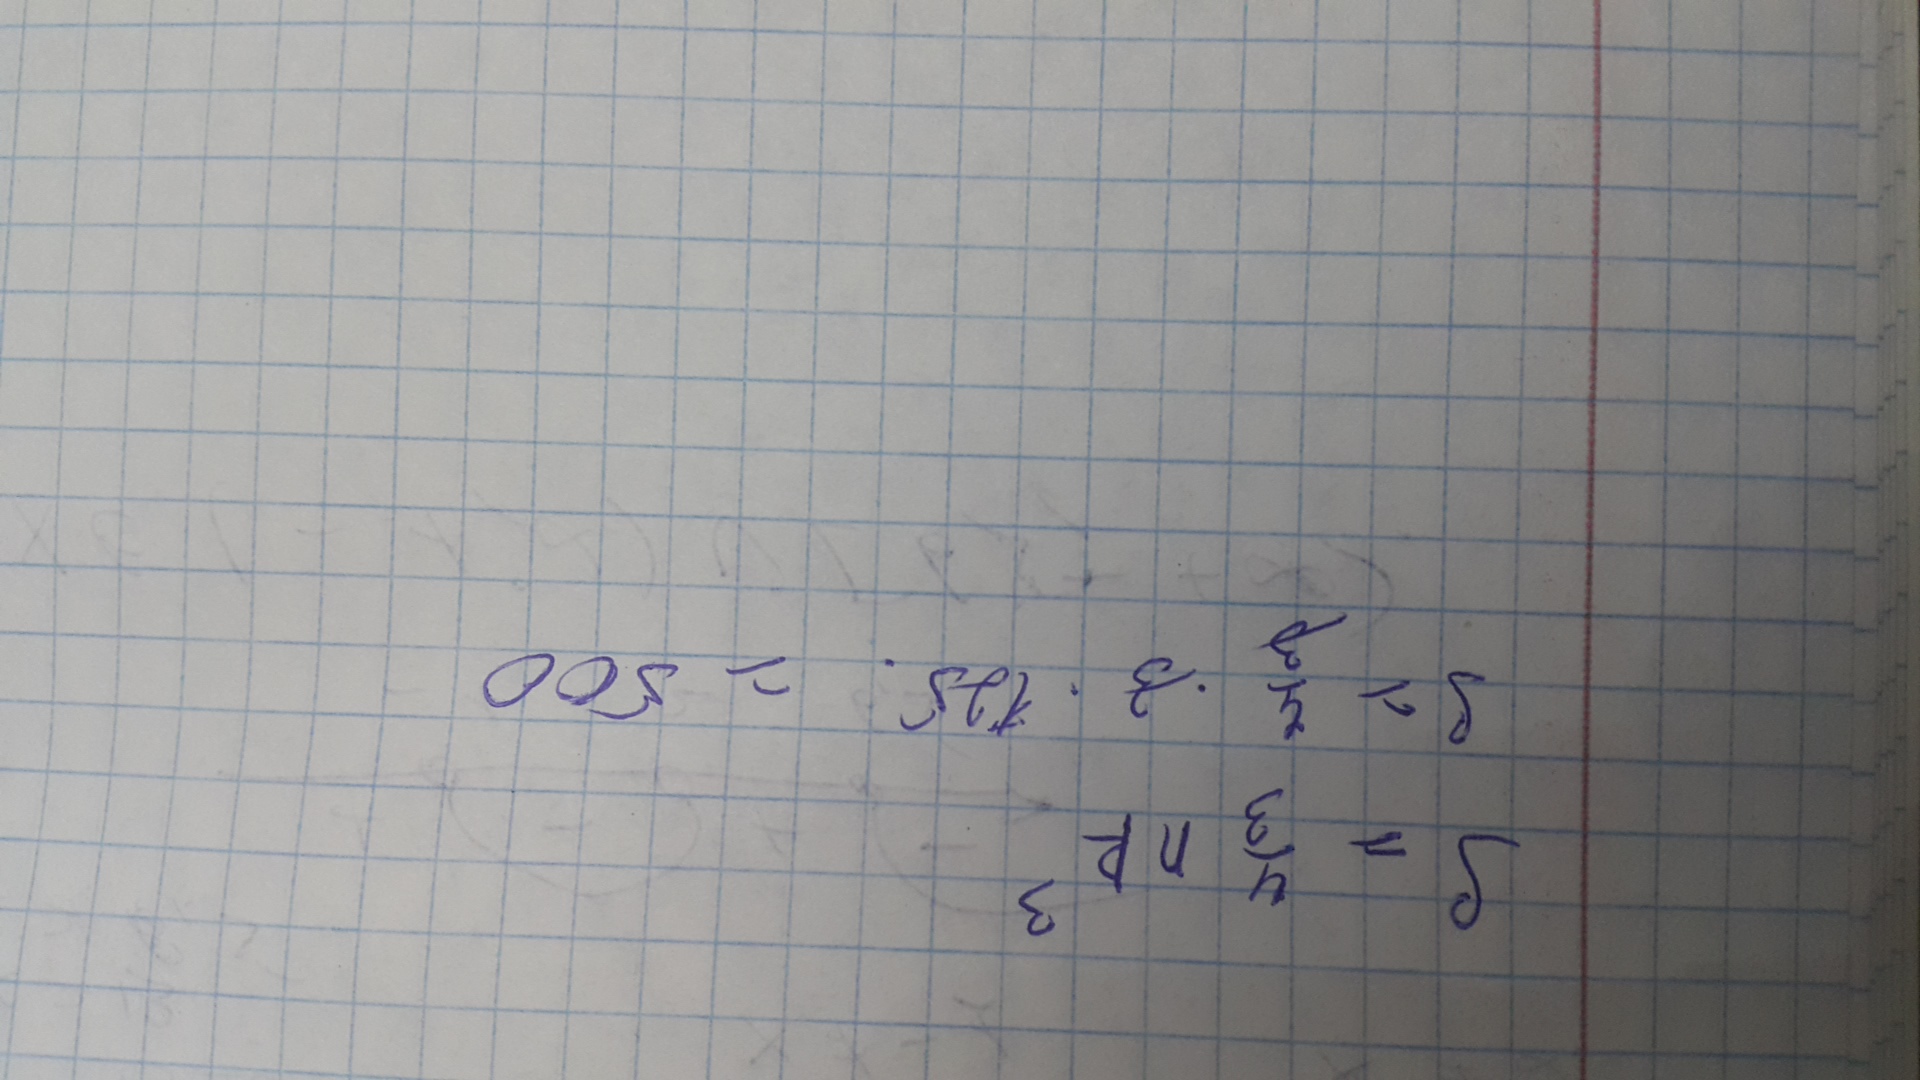 S = 4/3 п R³
S = 4/3 · 3 · 125. = 500